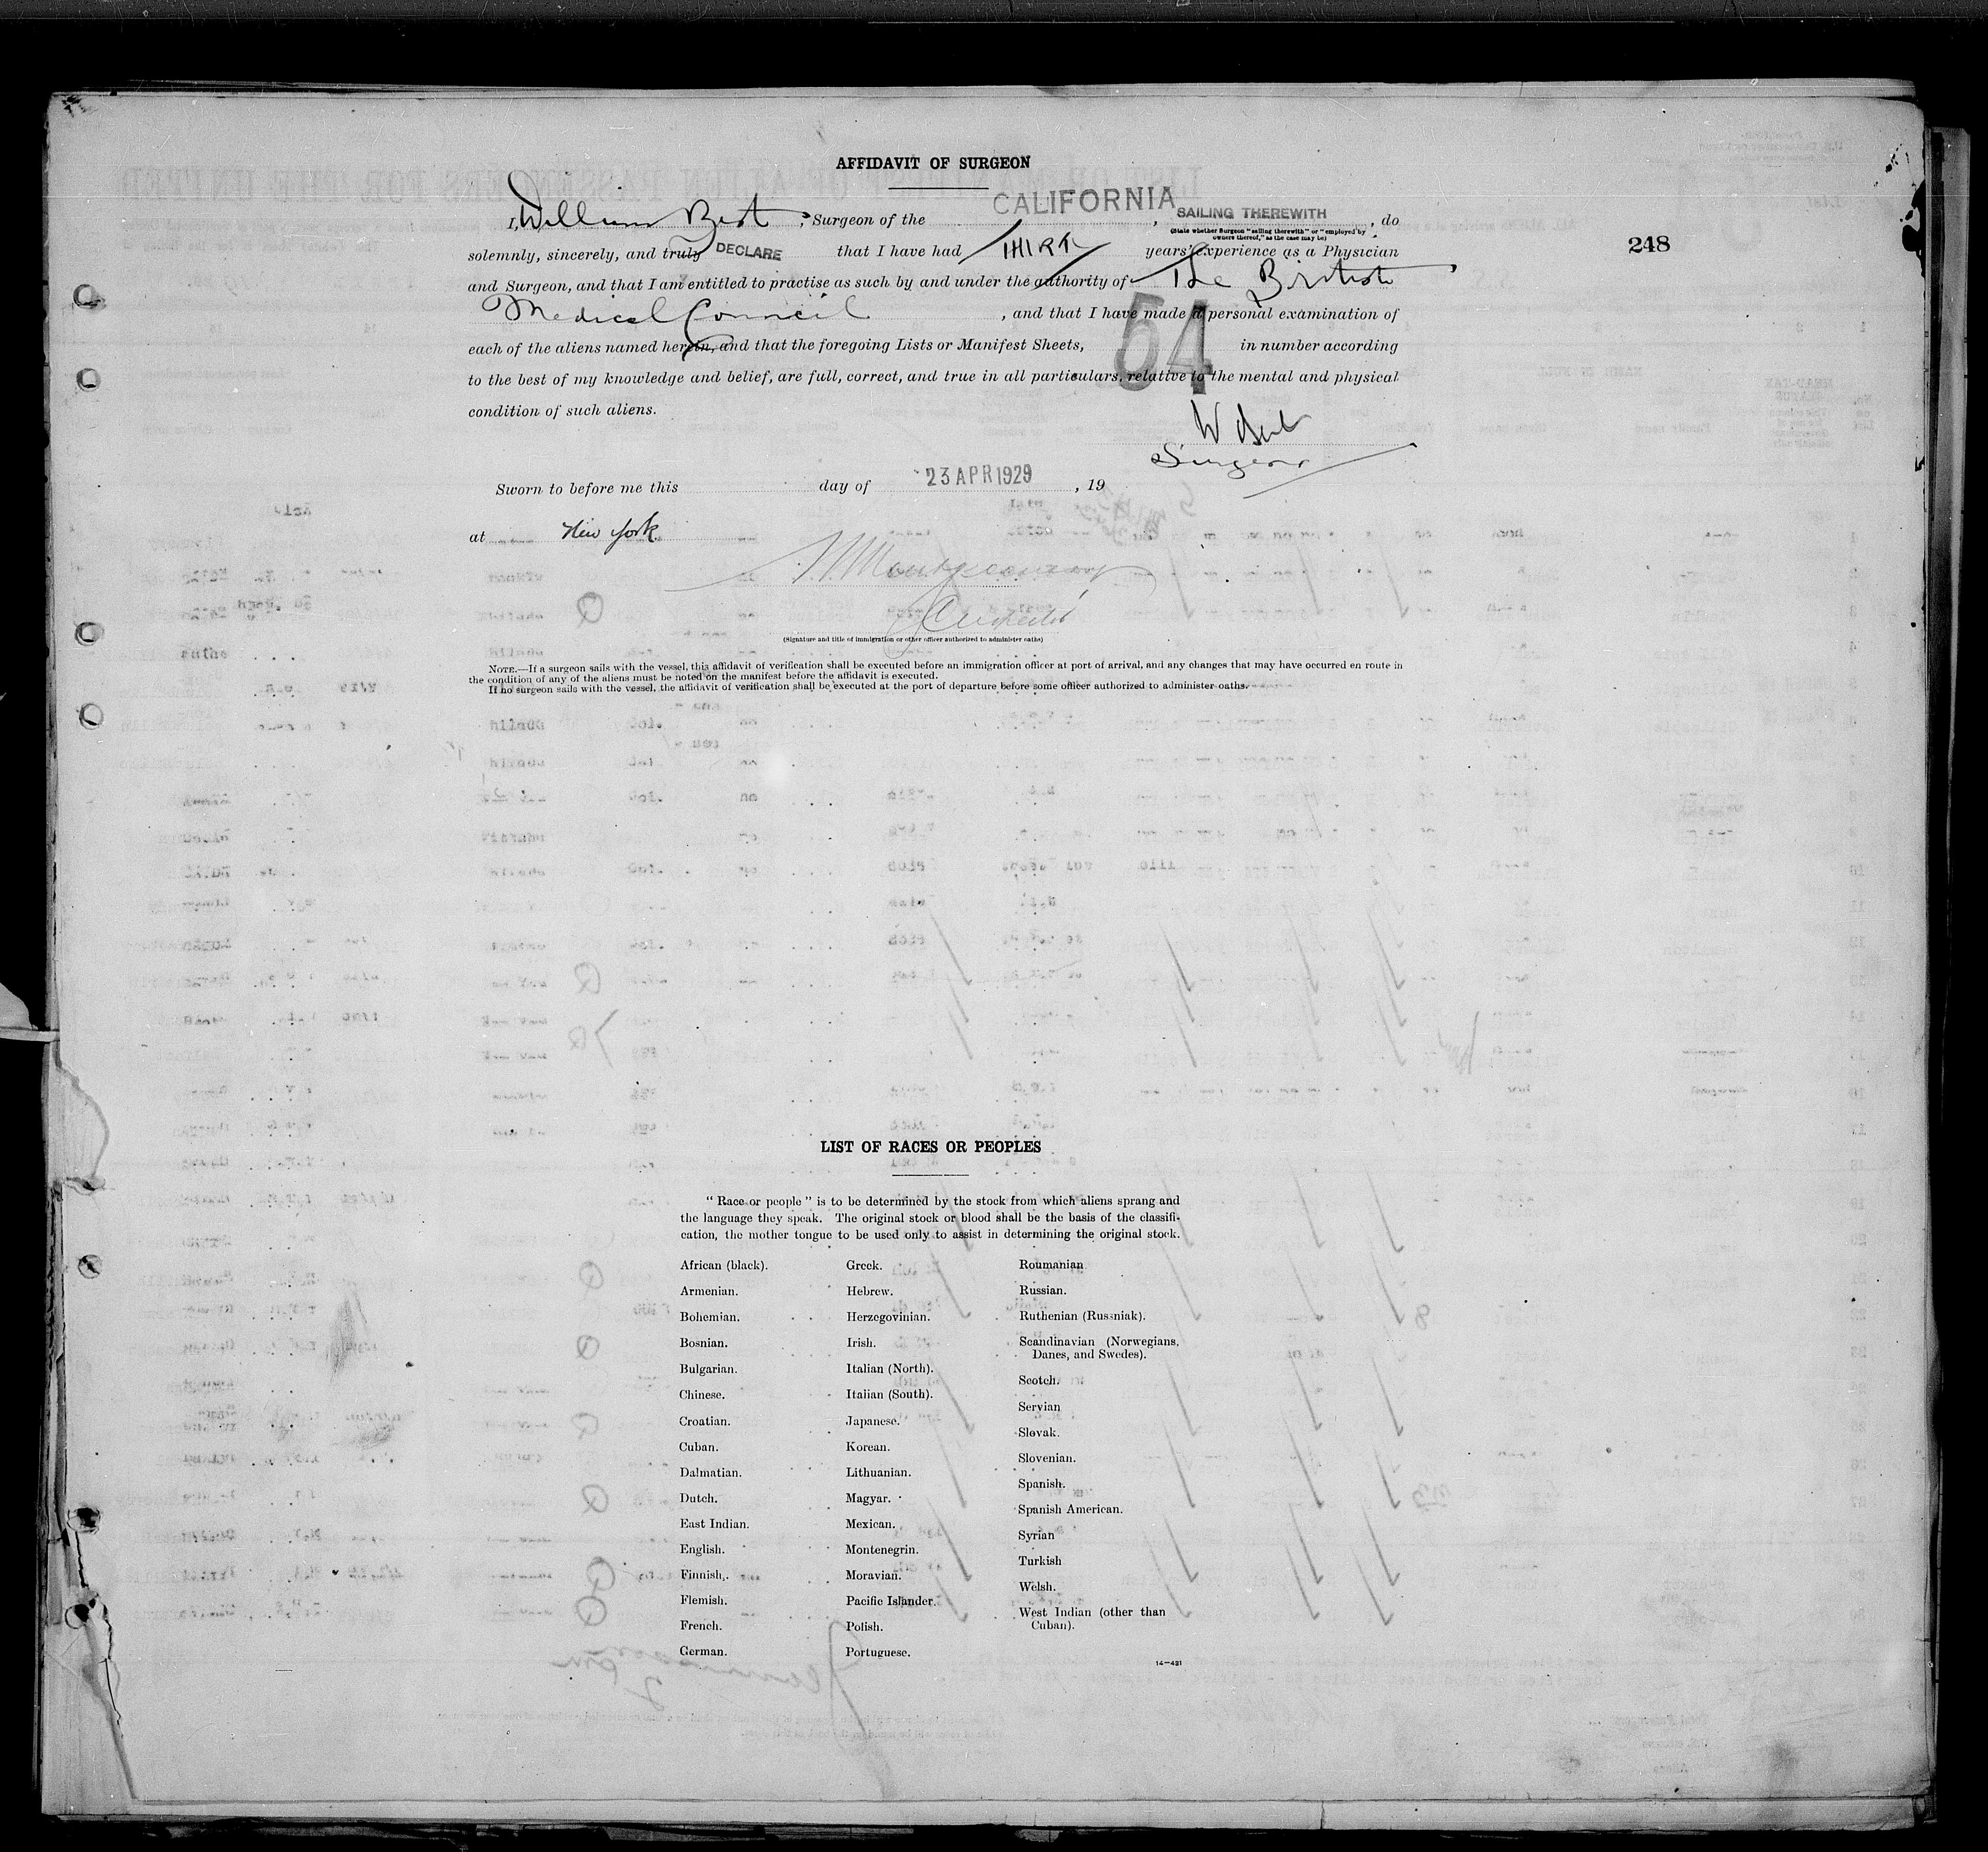 AFFIDAVIT OF SURGEON
I, William Best, Surgeon of the CALIFORNIA, SAILING THEREWITH, do
(State whether Surgeon "sailing therewith" or "employed by
owners thereof," as the case may be)
248
solemnly, sincerely, and truly DECLARE that I have had THIRTY years' experience as a Physician
and Surgeon, and that I am entitled to practise as such by and under the authority of The British
Medical Council, and that I have made a personal examination of
each of the aliens named herein, and that the foregoing Lists or Manifest Sheets, 54 in number according
to the best of my knowledge and belief, are full, correct, and true in all particulars, relative to the mental and physical
condition of such aliens.
W Best
Surgeon
Sworn to before me this day of 23 APR 1929, 19
at New York
Montgomery
(Signature and title of immigration or other officer authorized to administer oaths)
NOTE.—If a surgeon sails with the vessel, this affidavit of verification shall be executed before an immigration officer at port of arrival, and any changes that may have occurred en route in
the condition of any of the aliens must be noted on the manifest before the affidavit is executed.
If no surgeon sails with the vessel, the affidavit of verification shall be executed at the port of departure before some officer authorized to administer oaths.
LIST OF RACES OR PEOPLES
"Race or people" is to be determined by the stock from which aliens sprang and
the language they speak. The original stock or blood shall be the basis of the classifi-
cation, the mother tongue to be used only to assist in determining the original stock.
African (black).
Armenian.
Bohemian.
Bosnian.
Bulgarian.
Chinese.
Croatian.
Cuban.
Dalmatian.
Dutch.
East Indian.
English.
Finnish.
Flemish.
French.
German.
Greek.
Hebrew.
Herzegovinian.
Irish.
Italian (North).
Italian (South).
Japanese.
Korean.
Lithuanian.
Magyar.
Mexican.
Montenegrin.
Moravian.
Pacific Islander.
Polish.
Portuguese.
Roumanian
Russian.
Ruthenian (Russniak).
Scandinavian (Norwegians,
Danes, and Swedes).
Scotch.
Servian
Slovak.
Slovenian.
Spanish.
Spanish American.
Syrian
Turkish
Welsh.
West Indian (other than
Cuban).
14—431